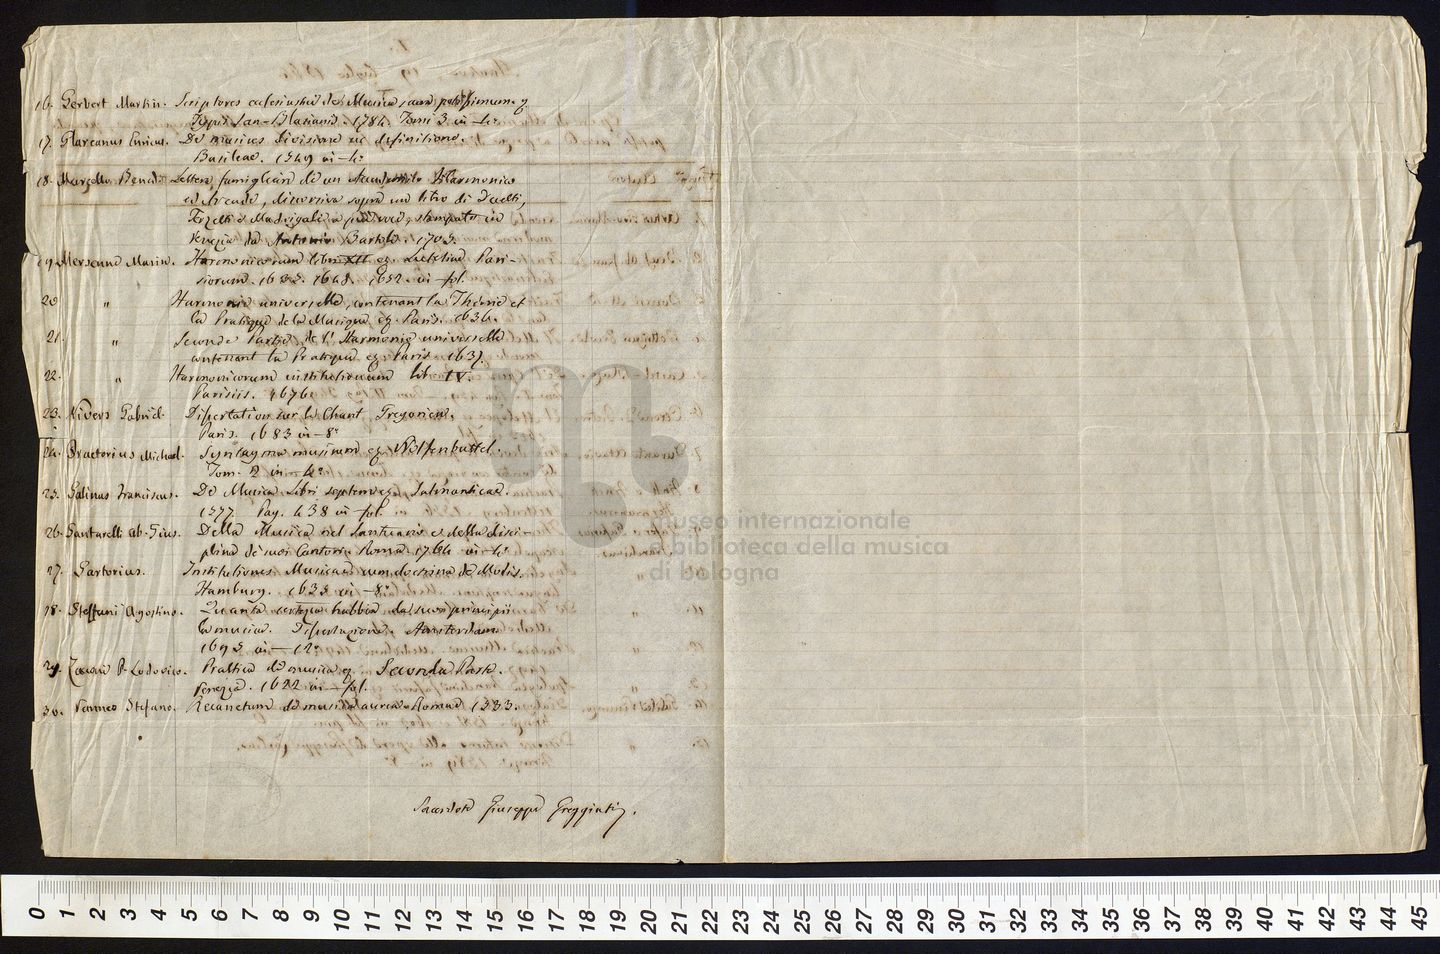 16. Gerbert Martin. Scriptores ecclesiastici de Musica sacra potissimum. &
Typis San-Blasianis. 1784. Tomi 3. in-4°.
17. Glareanus Enricus. De musices divisione ac definitione.
Basileae. 1549 in-4°
18. Marcello Bened. Lettera famigliare di un accademico Filarmonico
ed Arcade, discorsiva sopra un libro di Duetti,
Terzetti e Madrigali a più voci, stampato in
Venezia da Antonio Bartoli. 1705.
19. Mersenne Marin. Harmonicorum libri XII & Lutetiae Pari-
siorum. 1635. 1648. 1652. in-fol.
20 " Harmonie universelle, contenant la Théorie et
la Pratique de la Musique & Paris. 1636.
21. " Seconde Partie de l'Harmonie universelle
contenant la Pratique & Paris. 1637.
22. " Harmonicorum institutionum libri IV.
Parisiis. 1676
23. Nivers Gabriel. Dissertation sur le Chant Gregorien.
Paris. 1683 in-8°
24. Praetorius Michael. Syntagma musicum & Wolfenbuttel.
Tom. 2 in-4°
25. Salinas Franciscus. De Musica libri septem & Salmanticae.
1577. Pag. 438 in-fol.
26. Santarelli ab. Gius. Della Musica nel Santuario e della disci-
plina de' suoi Cantori. Roma. 1764 in-4°
27. Sartorius. Institutiones Musicae cum doctrina de Modis.
Hamburg. 1635 in-8°
28. Steffani Agostino. Quanta certezza habbia da suoi principii
la musica. Dissertazione. Amsterdam
1695 in-12°
29. Zacconi P. Lodovico. Prattica di musica & Seconda Parte.
Venezia. 1622 in-fol.
30. Vanneo Stefano. Recanetum de musica aurea. Romae 1533.
Sacerdote Giuseppe Greggiati.
museo internazionale
e biblioteca della musica
di bologna
0 1 2 3 4 5 6 7 8 9 10 11 12 13 14 15 16 17 18 19 20 21 22 23 24 25 26 27 28 29 30 31 32 33 34 35 36 37 38 39 40 41 42 43 44 45